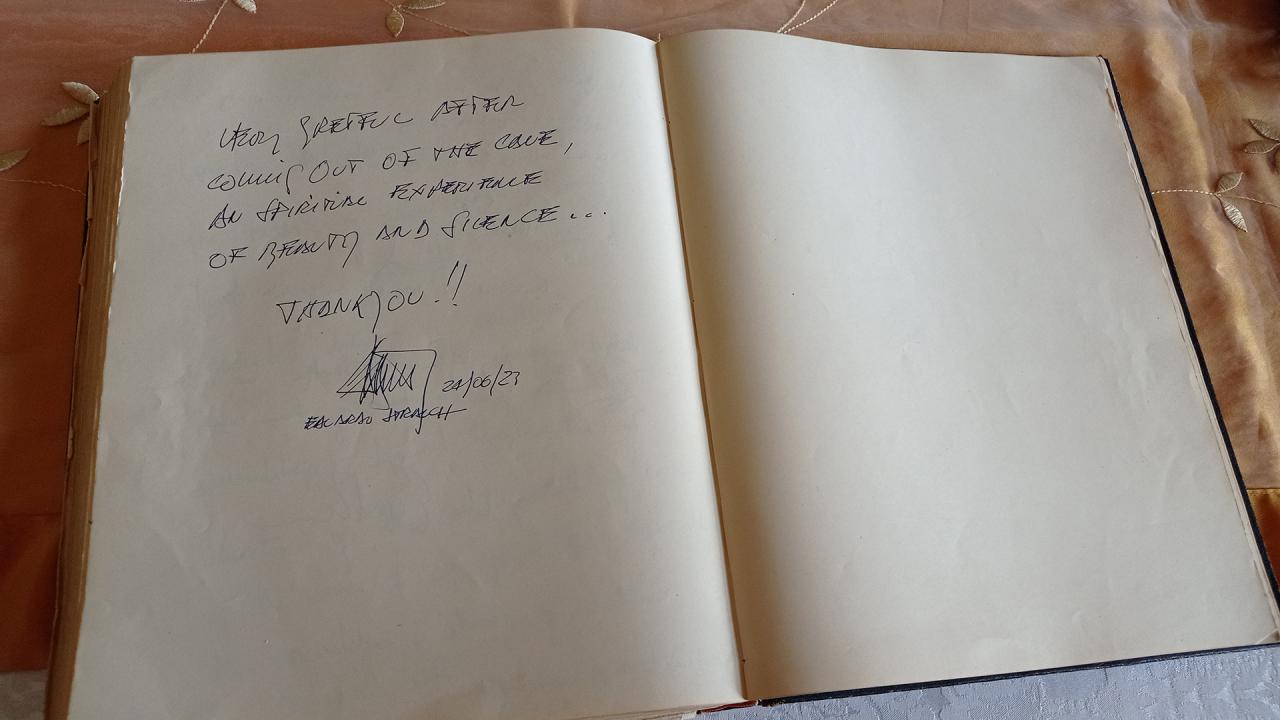 VERY GREATFUL AFTER
COMING OUT OF THE CAVE,
AN SPIRITUAL EXPERIENCE
OF BEAUTY AND SILENCE...
THANK YOU.!!
24/06/23